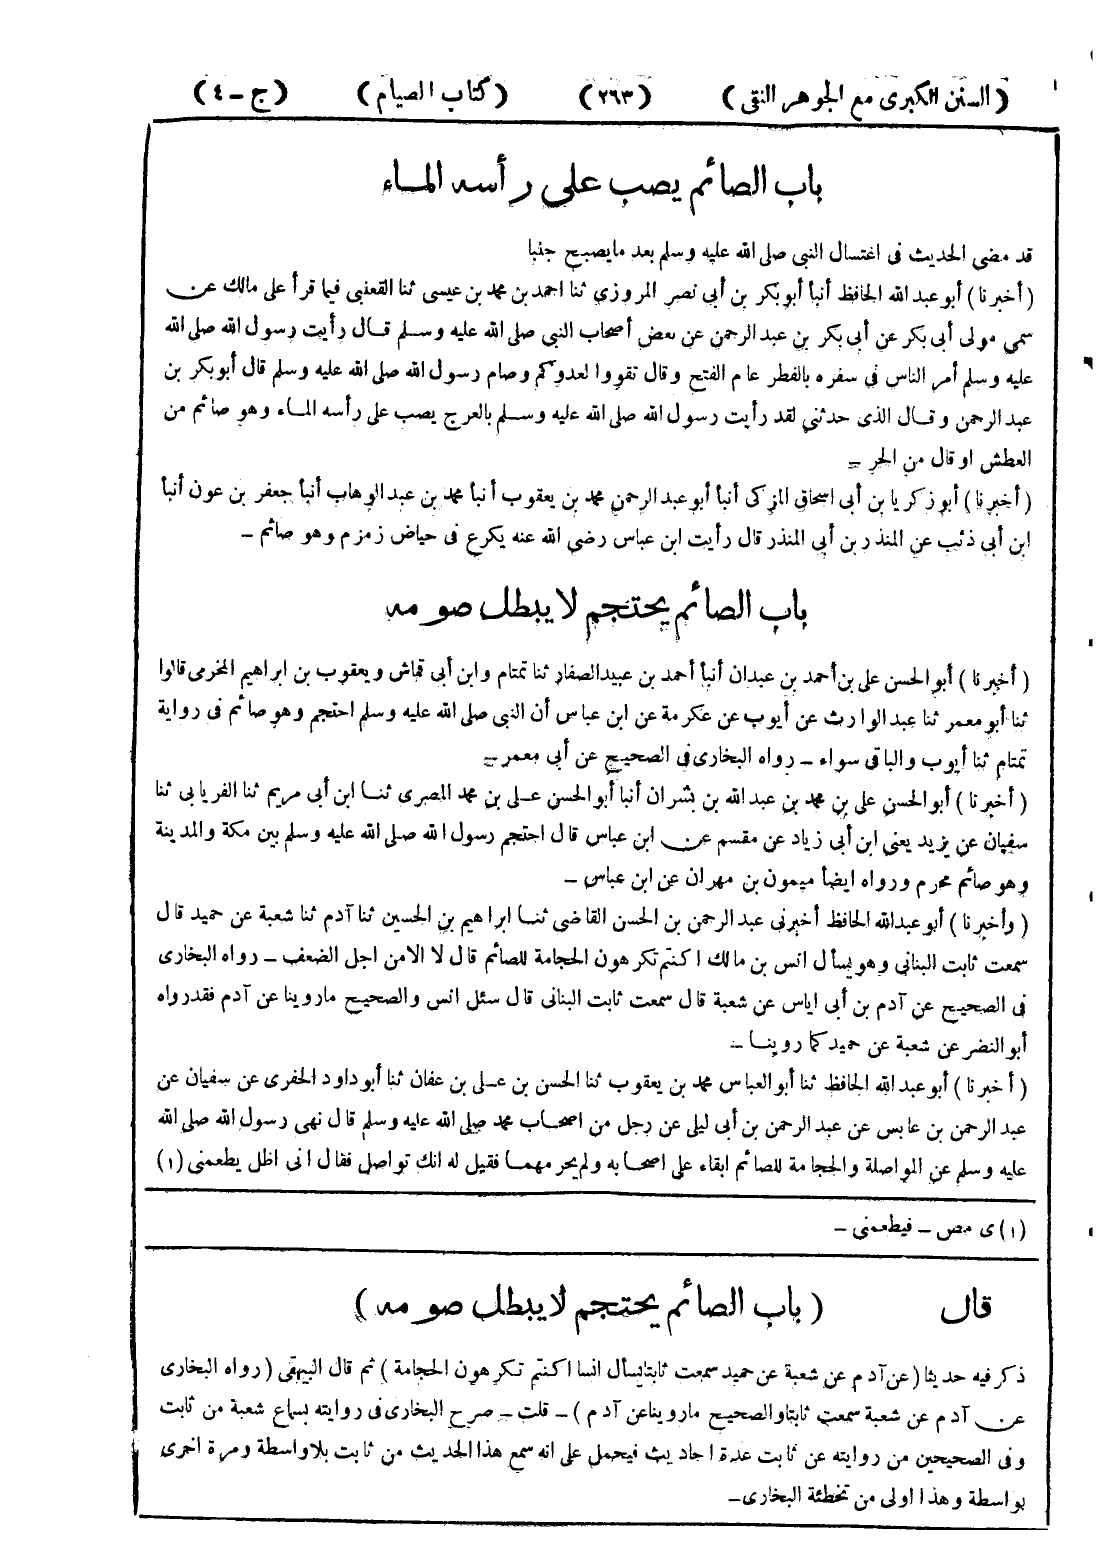 (السنن الكبرى مع الجوهر النقى) (٢٦٣) (كتاب الصيام) (ج - ٤)
باب الصائم يصب على رأسه الماء
قد مضى الحديث فى اغتسال النبى صلى الله عليه وسلم بعد ما يصبح جنبا
(أخبرنا) أبو عبد الله الحافظ أنبأ أبو بكر بن أبي نصر المروزي ثنا احمد بن محمد بن عيسى ثنا القعنبي فيما قرأ على مالك عن
سمي مولى أبي بكر عن أبي بكر بن عبد الرحمن عن بعض أصحاب النبي صلى الله عليه وسلم قال رأيت رسول الله صلى الله
عليه وسلم أمر الناس في سفره بالفطر عام الفتح وقال تقووا لعدوكم وصام رسول الله صلى الله عليه وسلم قال أبو بكر بن
عبد الرحمن وقال الذى حدثني لقد رأيت رسول الله صلى الله عليه وسلم بالعرج يصب على رأسه الماء وهو صائم من
العطش او قال من الحر -
(أخبرنا) أبو زكريا بن أبى اسحاق المزكى أنبأ أبو عبد الرحمن محمد بن يعقوب أنبأ محمد بن عبد الوهاب أنبأ جعفر بن عون أنبأ
ابن أبي ذئب عن المنذر بن أبي المنذر قال رأيت ابن عباس رضي الله عنه يكرع فى حياض زمزم وهو صائم -
باب الصائم يحتجم لا يبطل صومه
(أخبرنا) أبو الحسن على بن أحمد بن عبدان أنبأ أحمد بن عبيد الصفار ثنا تمتام وابن أبى قماش ويعقوب بن ابراهيم المخرمى قالوا
ثنا أبو معمر ثنا عبد الوارث عن أيوب عن عكرمة عن ابن عباس أن النبي صلى الله عليه وسلم احتجم وهو صائم فى رواية
تمتام ثنا أيوب والباقى سواء - رواه البخارى فى الصحيح عن أبى معمر -
(أخبرنا) أبو الحسن على بن محمد بن عبد الله بن بشران أنبأ أبو الحسن على بن محمد المصرى ثنا ابن أبى مريم ثنا الفريابى ثنا
سفيان عن يزيد يعنى ابن أبى زياد عن مقسم عن ابن عباس قال احتجم رسول الله صلى الله عليه وسلم بين مكة والمدينة
وهو صائم محرم ورواه ايضا ميمون بن مهران عن ابن عباس -
(وأخبرنا) أبو عبد الله الحافظ أخبرنى عبد الرحمن بن الحسن القاضى ثنا ابراهيم بن الحسين ثنا آدم ثنا شعبة عن حميد قال
سمعت ثابت البنانى وهو يسأل انس بن مالك اكنتم تكرهون الحجامة للصائم قال لا الا من اجل الضعف - رواه البخارى
فى الصحيح عن آدم بن أبى اياس عن شعبة قال سمعت ثابت البنانى قال سئل انس والصحيح ما روينا عن آدم فقد رواه
أبو النضر عن شعبة عن حميد كما روينا -
(أخبرنا) أبو عبد الله الحافظ ثنا أبو العباس محمد بن يعقوب ثنا الحسن بن على بن عفان ثنا أبو داود الحفرى عن سفيان عن
عبد الرحمن بن عابس عن عبد الرحمن بن أبى ليلى عن رجل من اصحاب محمد صلى الله عليه وسلم قال نهى رسول الله صلى الله
عليه وسلم عن المواصلة والحجامة للصائم ابقاء على اصحابه ولم يحرمهما فقيل له انك تواصل فقال انى اظل يطعمنى (١)
(١) ى مص - فيطعمنى -
قال (باب الصائم يحتجم لا يبطل صومه)
ذكر فيه حديثا (عن آدم عن شعبة عن حميد سمعت ثابتا يسأل انسا اكنتم تكرهون الحجامة) ثم قال البيهقى (رواه البخارى
عن آدم عن شعبة سمعت ثابتا والصحيح ما روينا عن آدم) - قلت - صرح البخارى فى روايته بسماع شعبة من ثابت
وفى الصحيحين من روايته عن ثابت عدة احاديث فيحمل على انه سمع هذا الحديث من ثابت بلا واسطة ومرة اخرى
بواسطة وهذا اولى من تخطئة البخارى -